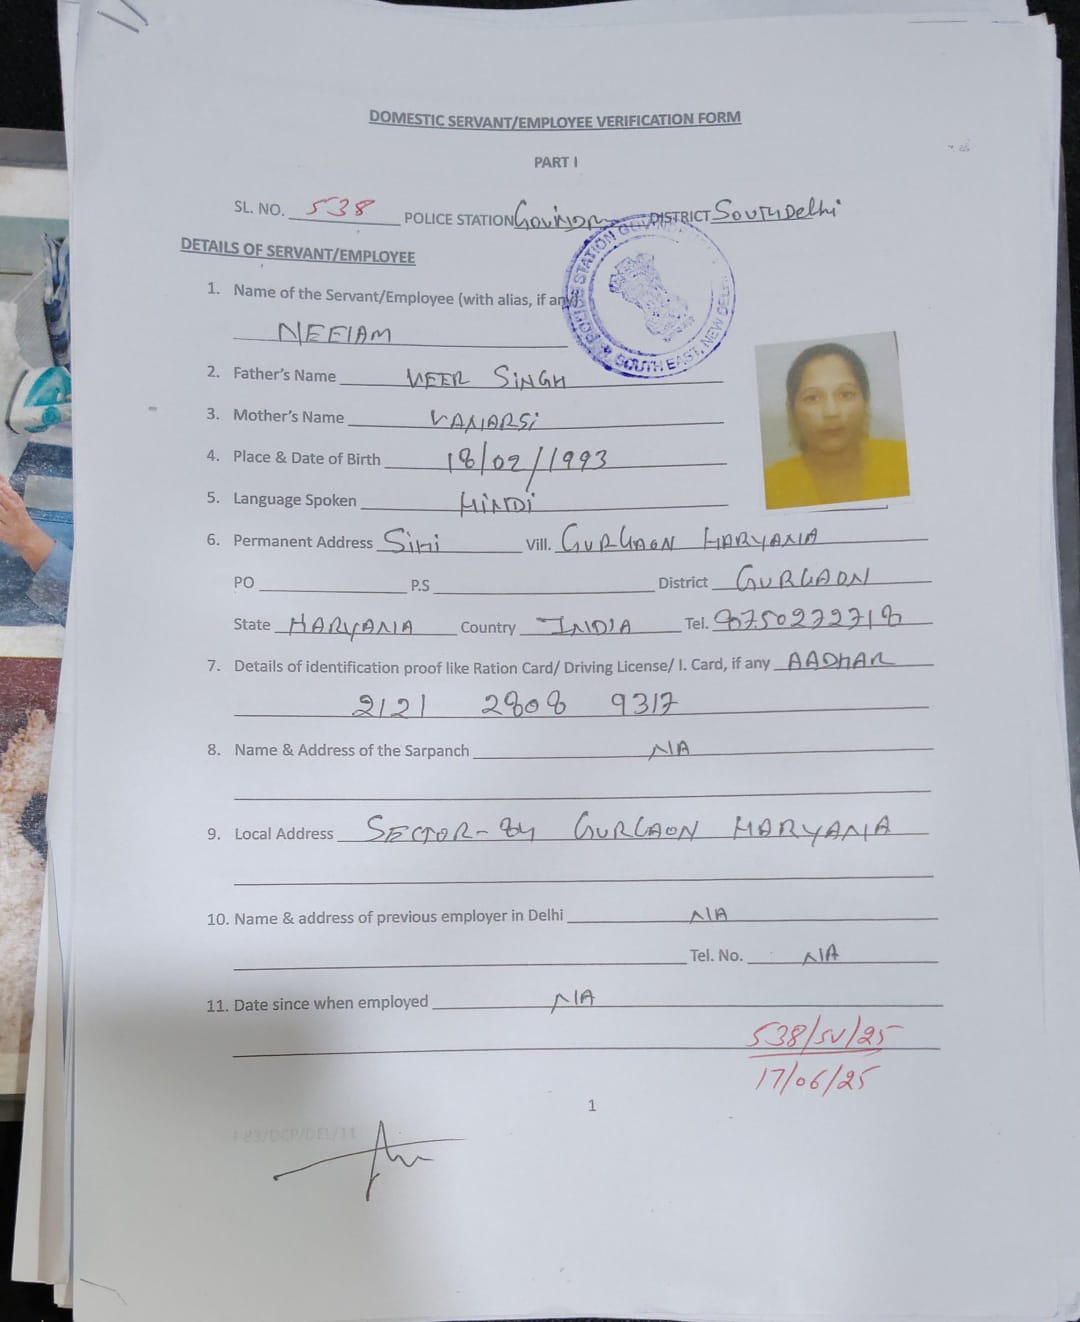 DOMESTIC SERVANT/EMPLOYEE VERIFICATION FORM
PART I
SL. NO. 538 POLICE STATION DISTRICT South Delhi
POLICE STATION SOUTH EAST, NEW DELHI
DETAILS OF SERVANT/EMPLOYEE
1. Name of the Servant/Employee (with alias, if any)
NEELAM
2. Father's Name VEER SINGH
3. Mother's Name VANARSI
4. Place & Date of Birth 18/02/1993
5. Language Spoken HINDI
6. Permanent Address Vill. GURGAON HARYANA
PO P.S District GURGAON
State HARYANA Country INDIA Tel.
7. Details of identification proof like Ration Card/ Driving License/ I. Card, if any AADHAR
2121 2808 9317
8. Name & Address of the Sarpanch N/A
9. Local Address SECTOR-84 GURGAON HARYANA
10. Name & address of previous employer in Delhi N/A
Tel. No. N/A
11. Date since when employed N/A
538/SV/25
17/06/25
1